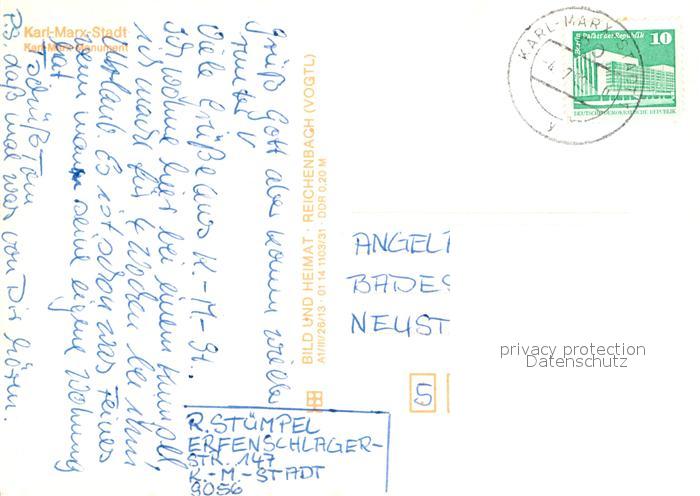 Karl-Marx-Stadt
Karl-Marx-Monument
Grüß Gott aber komm wieder
runter!
Viele Grüße aus K.-M.-St.
Ich wohne hier bei einem Kumpel
ich mache für 4 Wochen bei ihm
Urlaub. Es ist schon was feines
wenn man seine eigene Wohnung
hat
Tschüß Tom
P.S. laß mal was von Dir hören.
BILD UND HEIMAT · REICHENBACH (VOGTL)
A1/III/26/13 · 01 14 1103/31 · DDR 0,20 M
KARL-MARX-STADT
Berlin Palast der Republik
10
DEUTSCHE DEMOKRATISCHE REPUBLIK
ANGEL
BADES
NEUST
5
privacy protection
Datenschutz
R. STÜMPEL
ERFENSCHLAGER-
STR. 147
K.-M.-STADT
9056